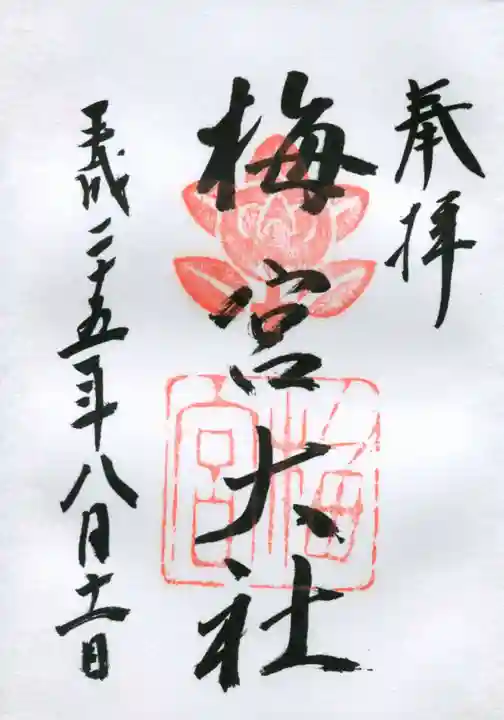 奉拝
梅宮大社
梅宮
平成二十五年八月十一日